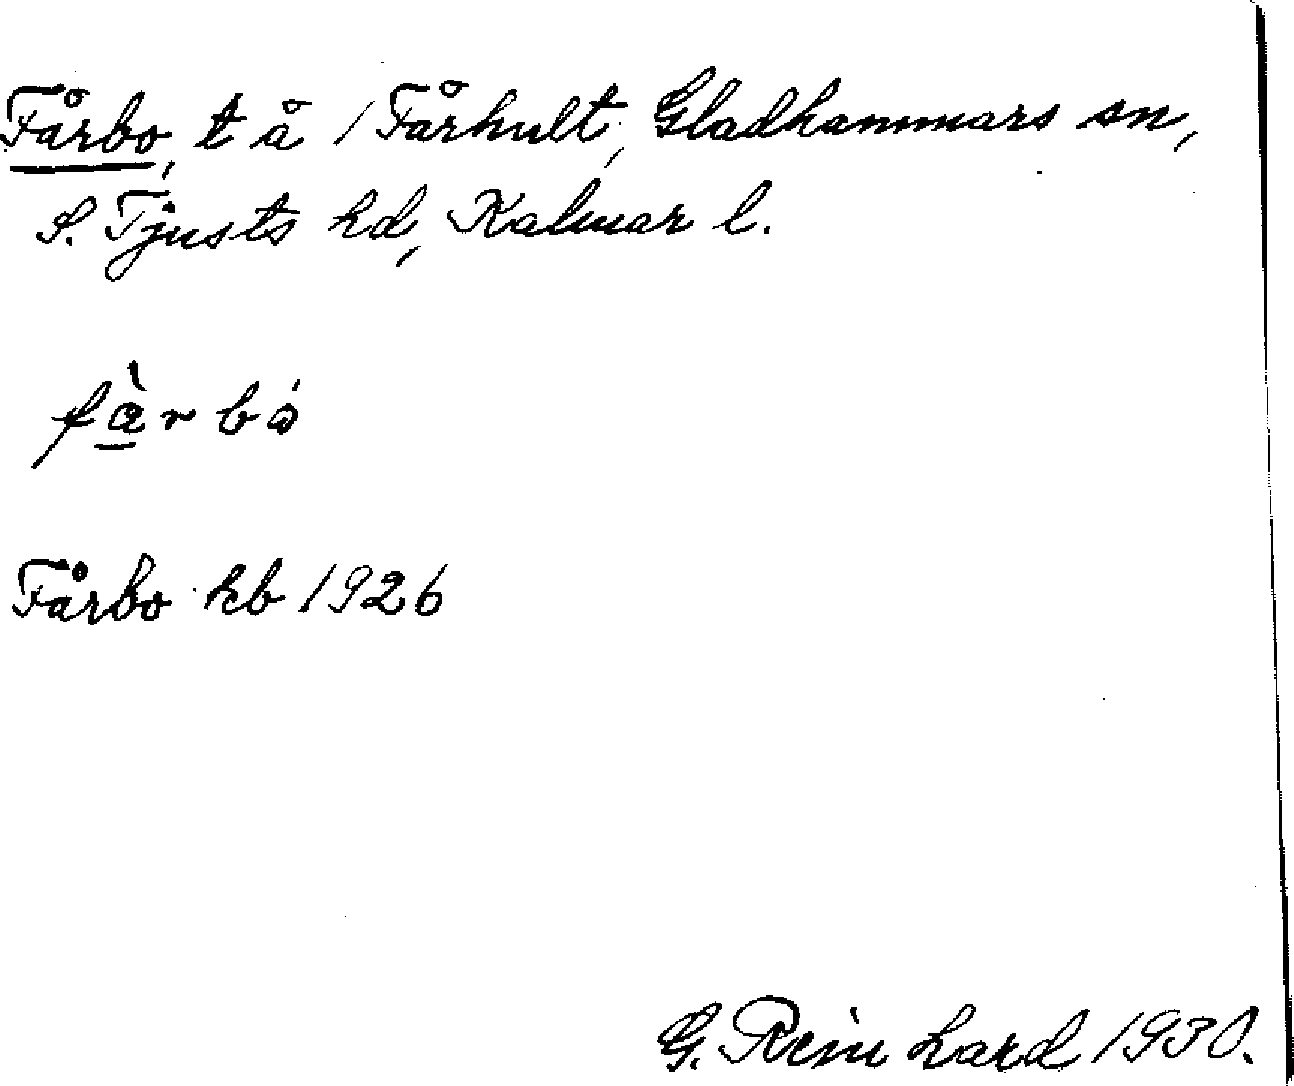 Fårbo, t å 1 Fårhult, Gladhammars sn,
S. Tjusts hd, Kalmar l.
fàrbó
Fårbo kb 1926
G. Reinhard 1930.